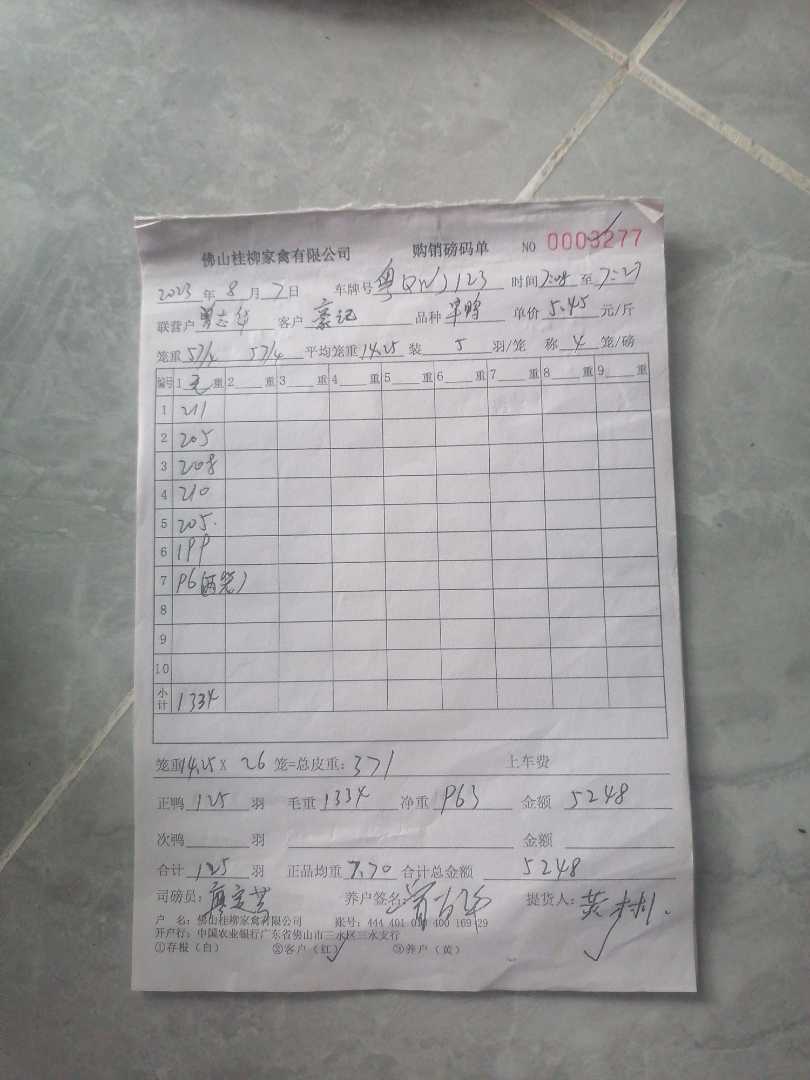 佛山桂柳家禽有限公司 购销磅码单 NO 0003277
2023年8月7日 车牌号 粤 123 时间 7:08 至 7:27
联营户 志华 客户 豪记 品种 单价 5.45 元/斤
笼重 57/4 57/4 平均笼重 14.25 装 5 羽/笼 称 4 笼/磅
编号 1 毛 重 2 重 3 重 4 重 5 重 6 重 7 重 8 重 9 重
1 211
2 205
3 208
4 210
5 205.
6 199
7 96(两笼)
8
9
10
小计 1334
笼重 14.25 X 26 笼=总皮重: 371 上车费
正鸭 125 羽 毛重 1334 净重 963 金额 5248
次鸭 羽 金额
合计 125 羽 正品均重 7.70 合计总金额 5248
司磅员: 养户签名: 提货人: 黄
户 名: 佛山桂柳家禽有限公司 账号: 444 401 010 400 169 29
开户行: 中国农业银行广东省佛山市三水区三水支行
①存报(白) ②客户(红) ③养户(黄)